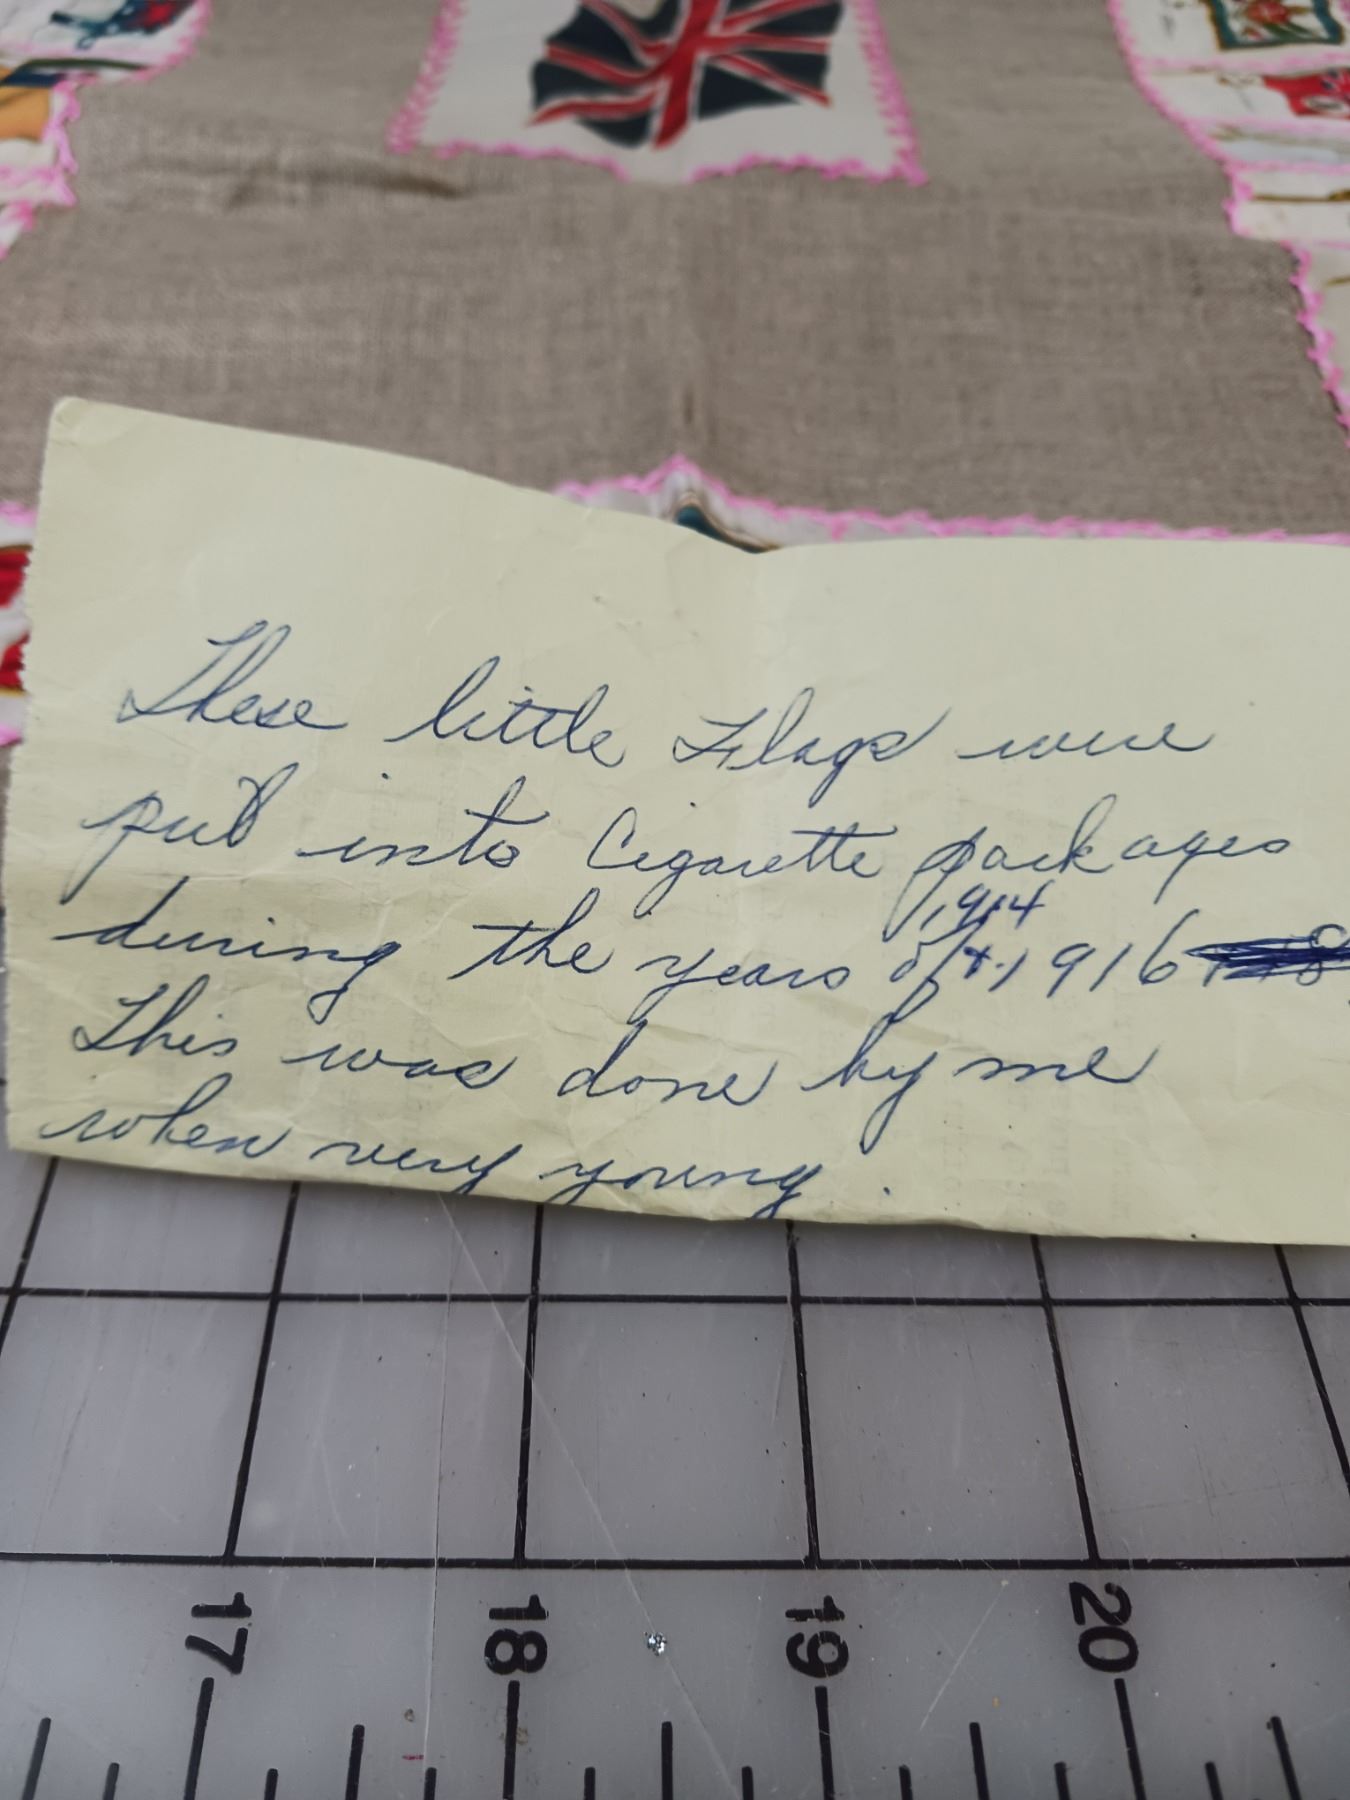 These little Flags were
put into Cigarette packages
1914
during the years of & 1916
This was done by me
when very young.
17 18 19 20